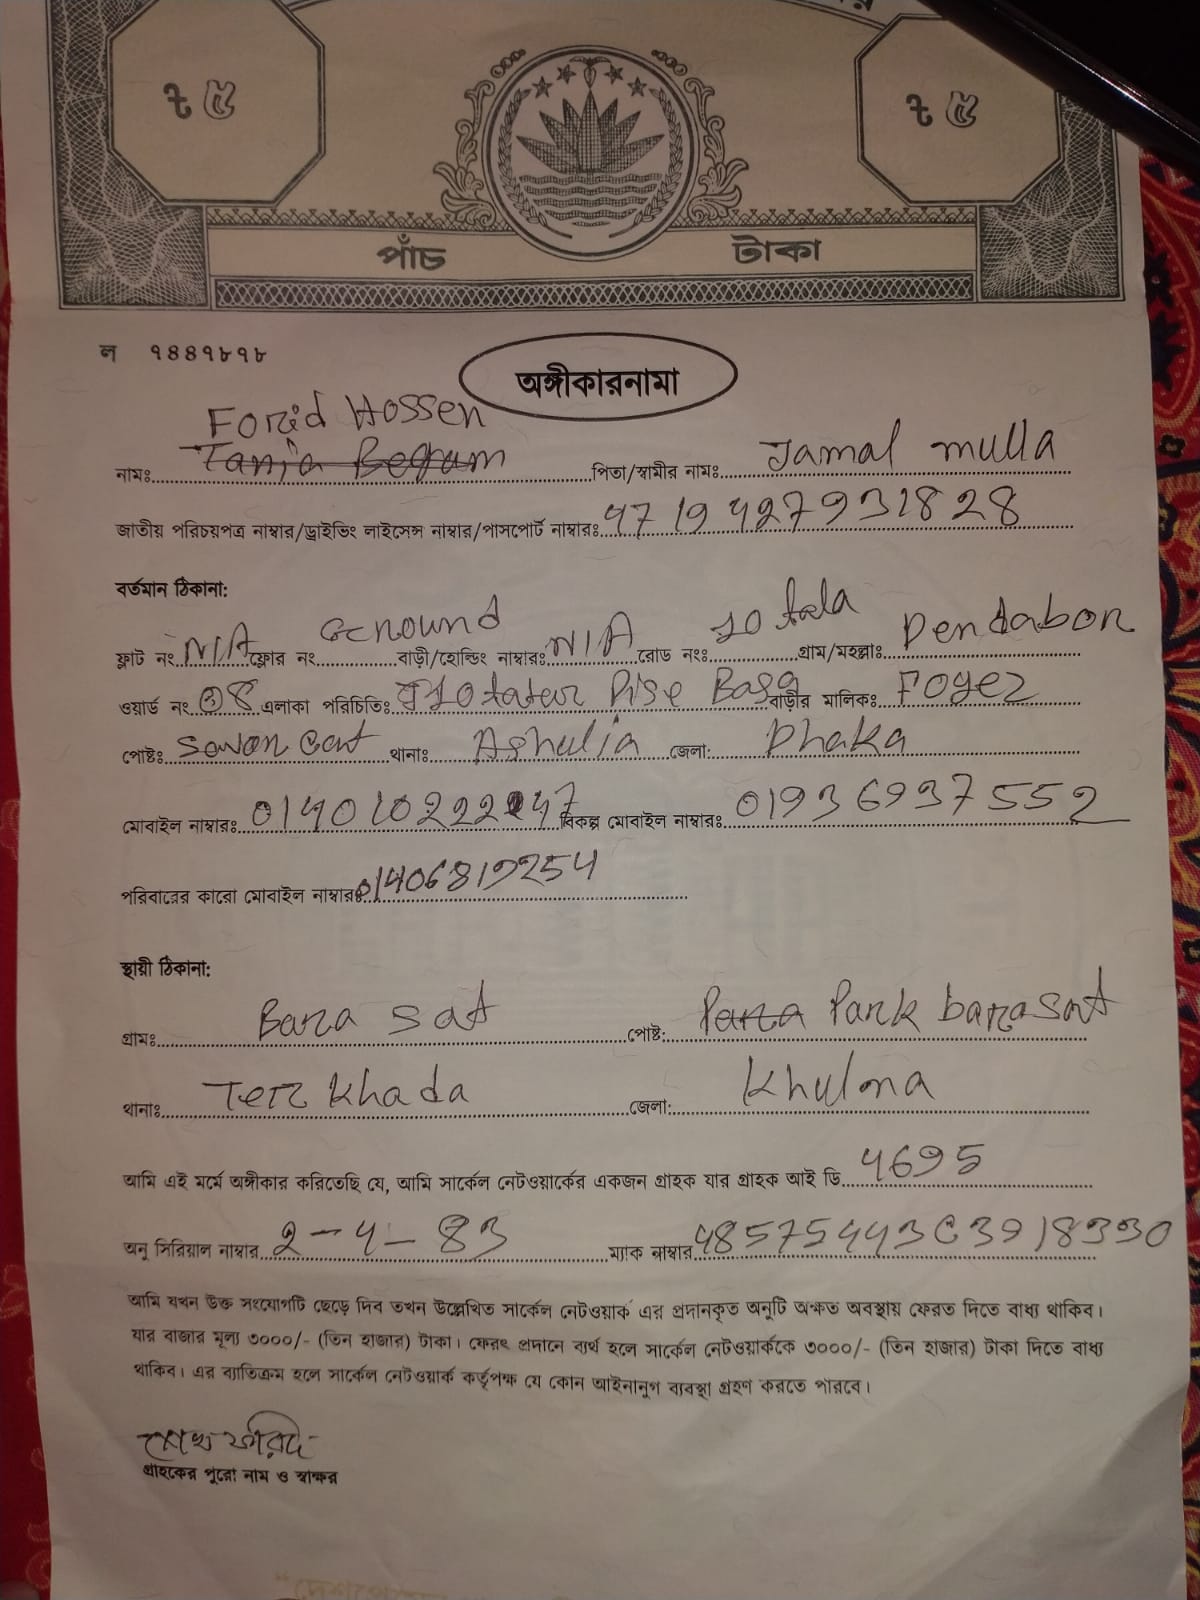 ৳ ৫ ৳ ৫
পাঁচ টাকা
ল ৭৪৪৭৮৭৮
অঙ্গীকারনামা
Forid Hossen
নামঃ Tania Begum পিতা/স্বামীর নামঃ Jamal mulla
জাতীয় পরিচয়পত্র নাম্বার/ড্রাইভিং লাইসেন্স নাম্বার/পাসপোর্ট নাম্বারঃ 4719427931828
বর্তমান ঠিকানা:
ফ্লাট নং N/A ফ্লোর নং Ground বাড়ী/হোল্ডিং নাম্বারঃ N/A রোড নংঃ 10 tala গ্রাম/মহল্লাঃ Dendabor
ওয়ার্ড নং 08 এলাকা পরিচিতিঃ 10 talar Pise Basa বাড়ীর মালিকঃ Foyez
পোষ্টঃ Savar Cant থানাঃ Ashulia জেলা: Dhaka
মোবাইল নাম্বারঃ বিকল্প মোবাইল নাম্বারঃ 01936937552
পরিবারের কারো মোবাইল নাম্বারঃ 01406819254
স্থায়ী ঠিকানা:
গ্রামঃ Bara sat পোষ্ট: Para Park barasat
থানাঃ Terz Khada জেলা: Khulna
আমি এই মর্মে অঙ্গীকার করিতেছি যে, আমি সার্কেল নেটওয়ার্কের একজন গ্রাহক যার গ্রাহক আই ডি 4695
অনু সিরিয়াল নাম্বার 2-4-83 ম্যাক নাম্বার 48575443C3918330
আমি যখন উক্ত সংযোগটি ছেড়ে দিব তখন উল্লেখিত সার্কেল নেটওয়ার্ক এর প্রদানকৃত অনুটি অক্ষত অবস্থায় ফেরত দিতে বাধ্য থাকিব।
যার বাজার মূল্য ৩০০০/- (তিন হাজার) টাকা। ফেরৎ প্রদানে ব্যর্থ হলে সার্কেল নেটওয়ার্ককে ৩০০০/- (তিন হাজার) টাকা দিতে বাধ্য
থাকিব। এর ব্যতিক্রম হলে সার্কেল নেটওয়ার্ক কর্তৃপক্ষ যে কোন আইনানুগ ব্যবস্থা গ্রহণ করতে পারবে।
শেখ ফরিদ
গ্রাহকের পুরো নাম ও স্বাক্ষর